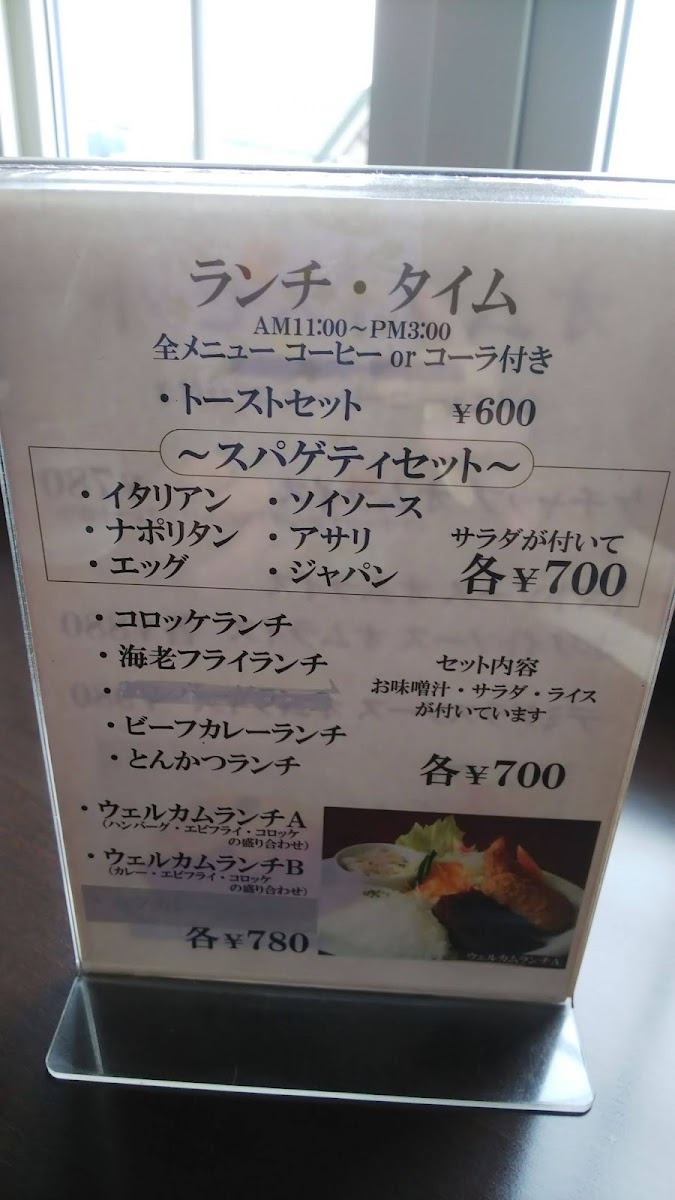 ランチ・タイム
AM11:00～PM3:00
全メニュー コーヒー or コーラ付き
・トーストセット ￥600
～スパゲティセット～
・イタリアン ・ソイソース
・ナポリタン ・アサリ サラダが付いて
・エッグ ・ジャパン 各￥700
・コロッケランチ
・海老フライランチ セット内容
・ お味噌汁・サラダ・ライス
が付いています
・ビーフカレーランチ
・とんかつランチ 各￥700
・ウェルカムランチA
（ハンバーグ・エビフライ・コロッケ
の盛り合わせ）
・ウェルカムランチB
（カレー・エビフライ・コロッケ
の盛り合わせ）
各￥780
ウェルカムランチA